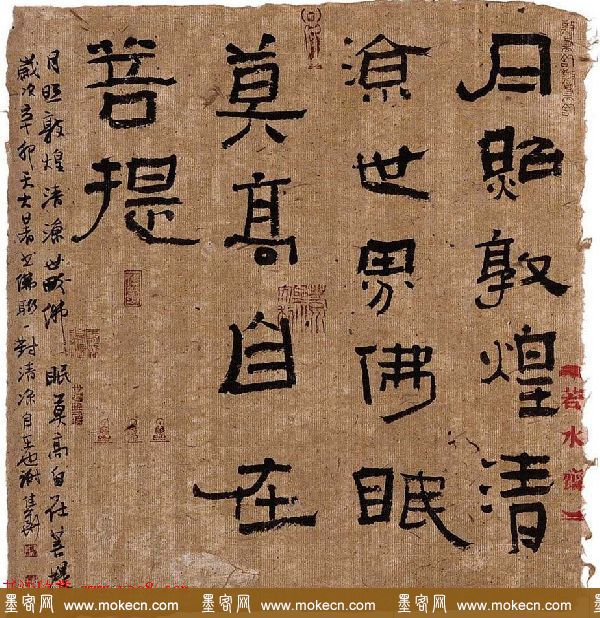 月照敦煌清
凉世界佛眠
莫高自在
菩提
月照敦煌清凉世界佛眠莫高自在菩提
岁次辛卯天大暑书佛联一对清凉自在也谢
若水斋
墨客网 www.mokecn.com 墨客网 www.mokecn.com 墨客网 www.mokecn.com